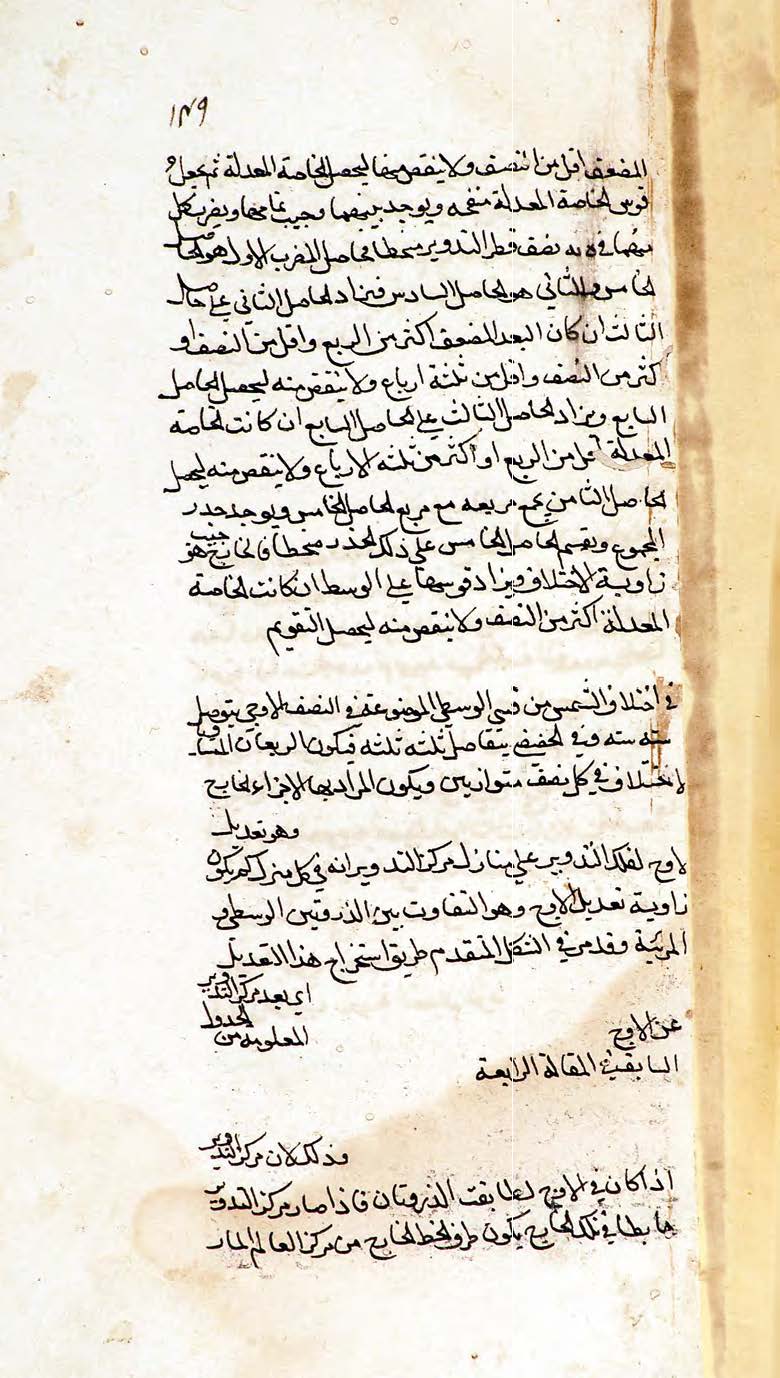 ١٣٩
المضعف اقل من النصف ولا ينقص منها ليحصل الخاصة المعدلة ثم يجعل
قوس الخاصة المعدلة منقحه ويوجد جيبها وجيب تمامها ويضرب كل
منهما في ه يه نصف قطر التدوير منحطا فحاصل الضرب الاول هو الحاصل
الخامس والثاني هو الحاصل السادس فيزاد الحاصل الثاني على حاصل
الثالث ان كان البعد المضعف اكثر من الربع واقل من النصف او
كثر من النصف واقل من ثلثة ارباع ولا ينقص منه ليحصل الحاصل
السابع ويزاد الحاصل الثالث على الحاصل السابع ان كانت الخاصة
المعدلة اقل من الربع او اكثر من ثلثه الارباع ولا ينقص منه ليحصل
الحاصل الثامن يجمع مربعه مع مربع الحاصل الخامس ويوجد جذر
المجموع ويقسم الحاصل الخامس على ذلك الجذر منحطا فالخارج هو جيب
زاوية الاختلاف ويزاد قوسها على الوسط ان كانت الخاصة
المعدلة اكثر من النصف ولا ينقص منه ليحصل التقويم
في اختلاف الشمس من قسي الوسطى الموضوعة في النصف الاوجي يتوصل
سته سته وفي الحضيض يتفاصل ثلثه ثلثه فيكون الربعان
لاختلاف في كل نصف متوازيين ويكون المراد بها الاجزاء الخارج
وهو تعديل
لاوج لفلك التدوير على منازل مركز التدوير انه في كل منزل كم يكون
زاوية تعديل الاوج وهو التفاوت بين الذروتين الوسطى و
المرئية وقد مر في الشكل المتقدم طريق استخراج هذا التعديل
اي بعد مركز التدوير
عن الاوج المعلومة من الجدول
السابقة في المقالة الرابعة
وذلك لان مركز التدوير
اذا كان في الاوج لطابقت الذروتان فاذا صار مركز التدوير
هابطا في فلك الخارج يكون طرف الخط الخارج من مركز العالم المار